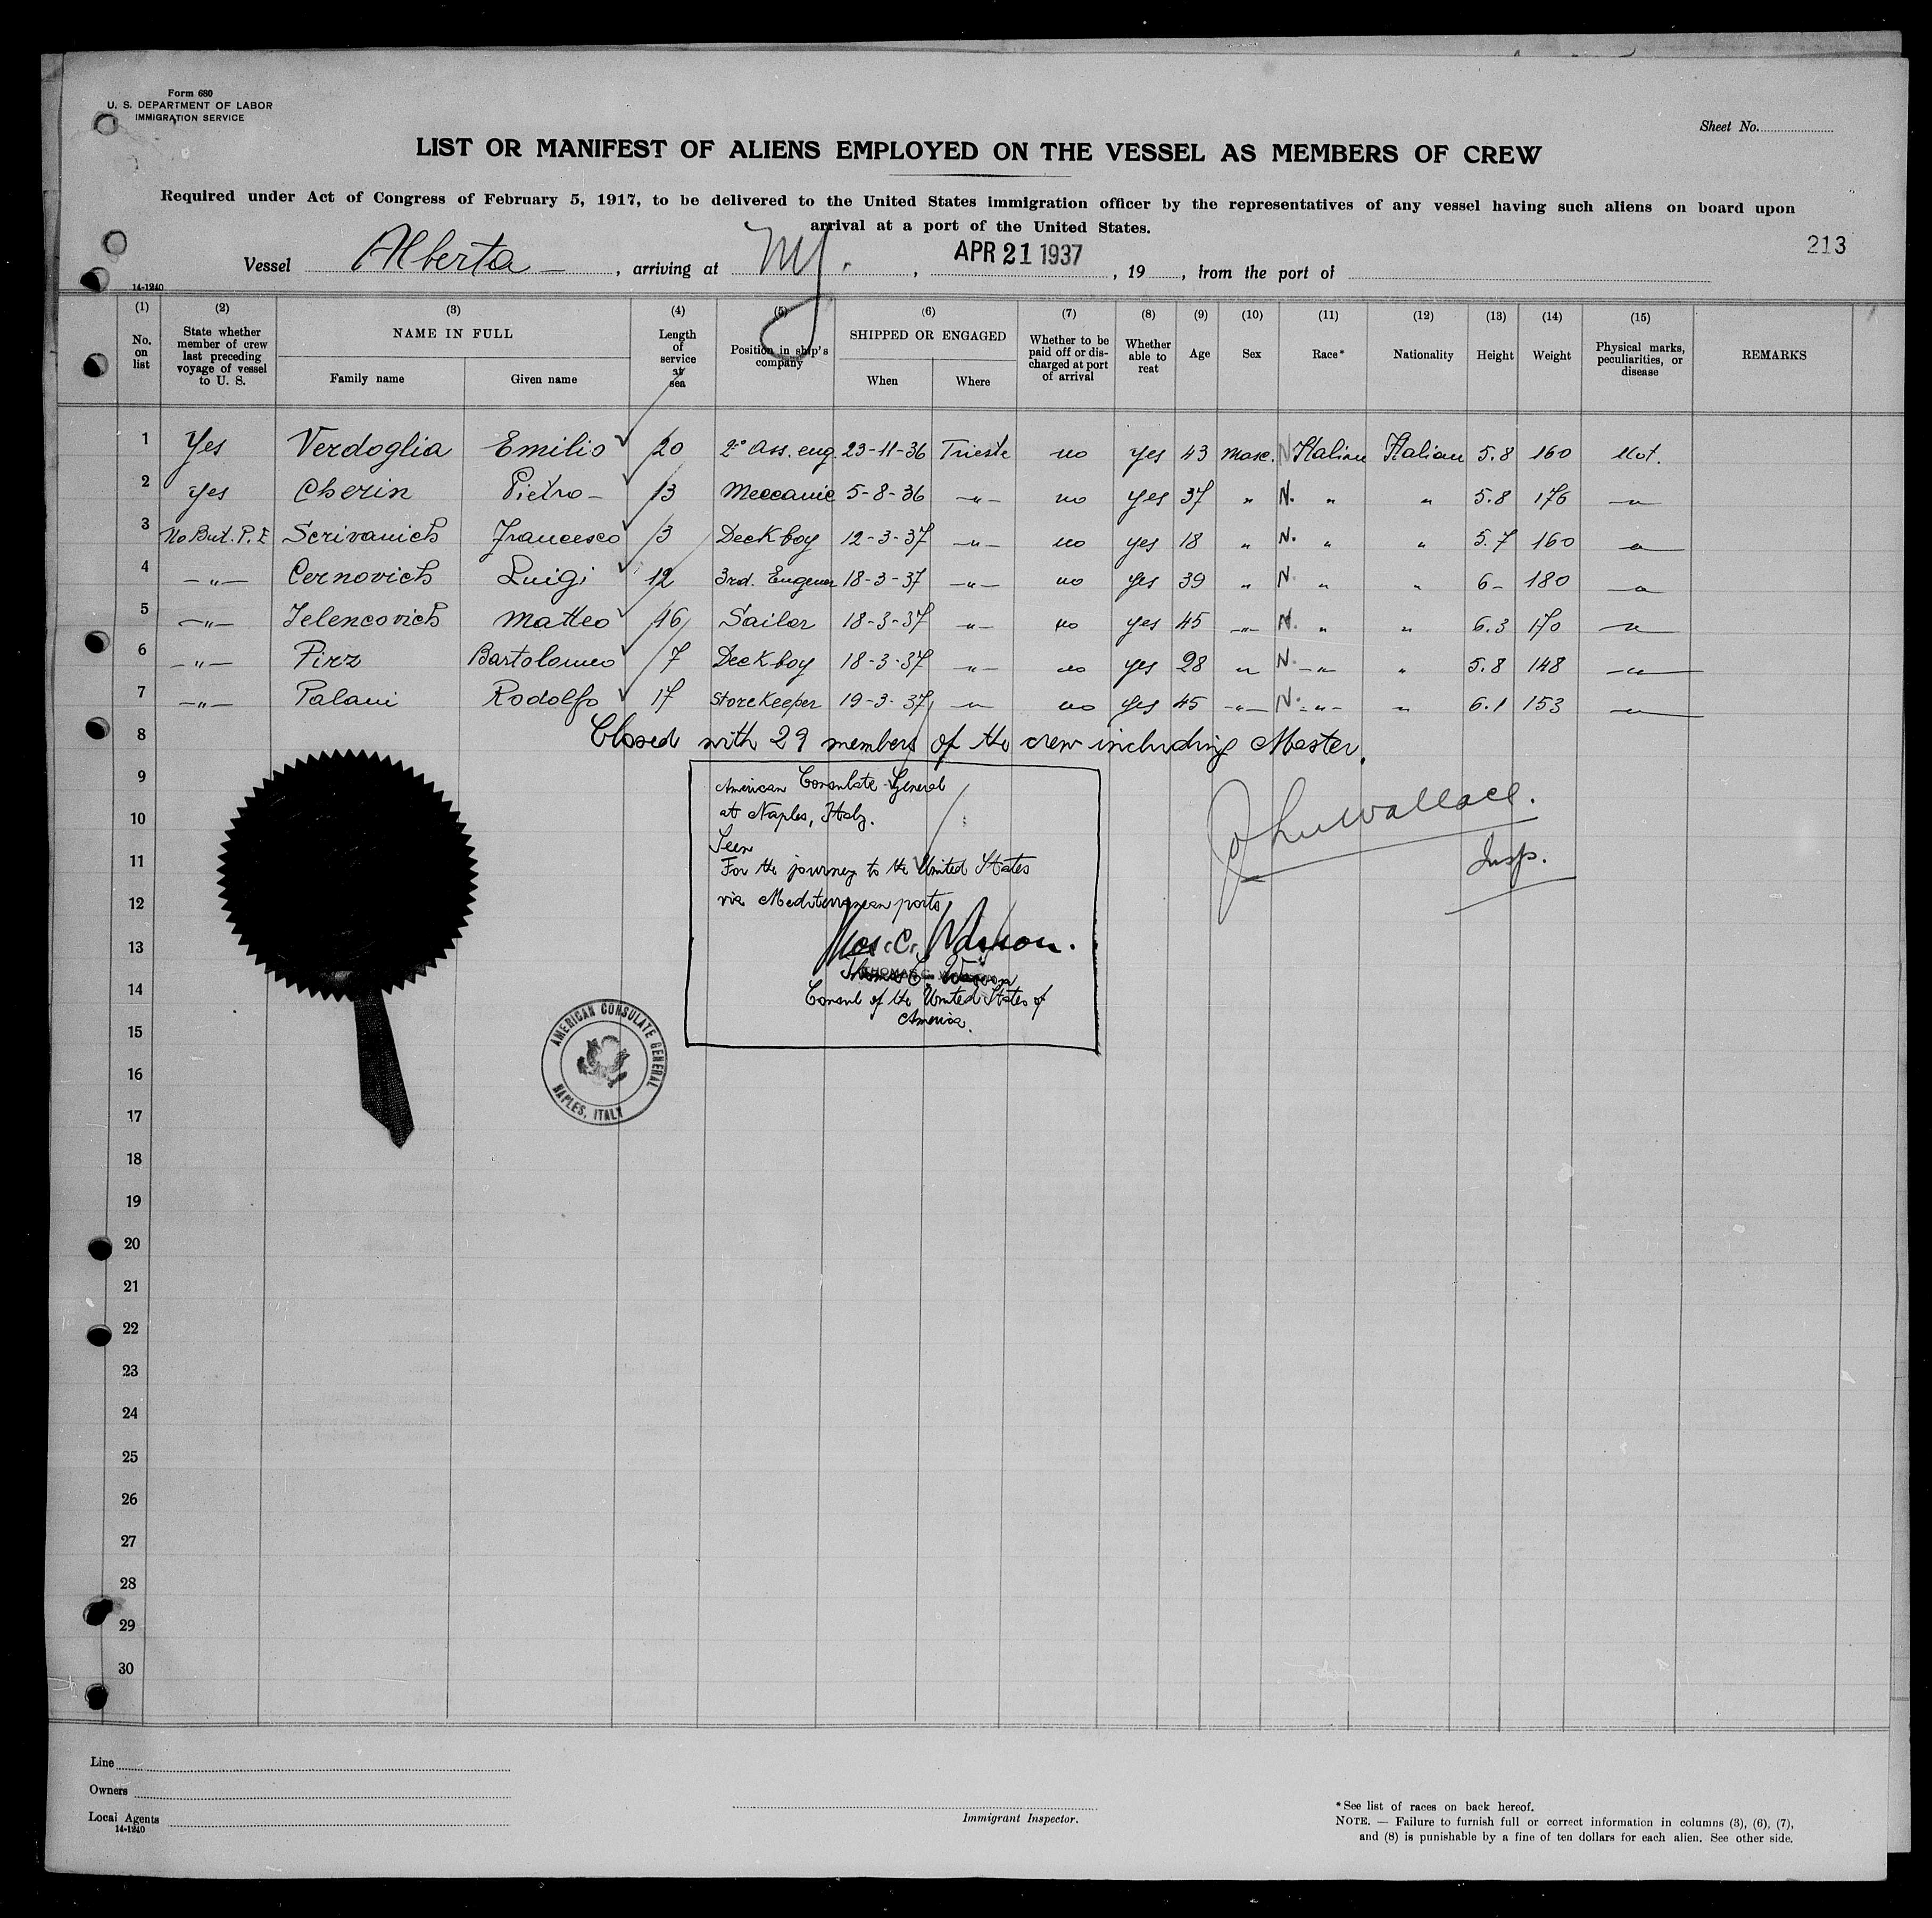 Form 680
U. S. DEPARTMENT OF LABOR
IMMIGRATION SERVICE
Sheet No.
LIST OR MANIFEST OF ALIENS EMPLOYED ON THE VESSEL AS MEMBERS OF CREW
Required under Act of Congress of February 5, 1917, to be delivered to the United States immigration officer by the representatives of any vessel having such aliens on board upon
arrival at a port of the United States.
213
Vessel Alberta, arriving at NY., APR 21 1937, 19, from the port of
14-1240
(1) (2) (3) (4) (5) (6) (7) (8) (9) (10) (11) (12) (13) (14) (15)
No. on list State whether member of crew last preceding voyage of vessel to U. S. NAME IN FULL Length of service at sea Position in ship's company SHIPPED OR ENGAGED Whether to be paid off or discharged at port of arrival Whether able to reat Age Sex Race* Nationality Height Weight Physical marks, peculiarities, or disease REMARKS
Family name Given name When Where
1 Yes Verdoglia Emilio 20 2º Ass. eng. 23-11-36 Trieste no yes 43 Masc. N Italian Italian 5.8 160 Not.
2 yes Cherin Pietro - 13 Meccanic 5-8-36 -"- no yes 37 " N. " " 5.8 176 -"-
3 No But. P. E Scrivanich Francesco 3 Deck boy 12-3-37 -"- no yes 18 " N. " " 5.7 160 -"-
4 -"- Cernovich Luigi 12 3rd. Engener 18-3-37 -"- no yes 39 " N. " " 6- 180 -"-
5 -"- Telencovich Matteo 16 Sailor 18-3-37 -"- no yes 45 -"- N. " " 6.3 170 -"-
6 -"- Pirz Bartolomeo 7 Deck boy 18-3-37 -"- no yes 28 " N. -"- " 5.8 148 -"-
7 -"- Palani Rodolfo 17 Storekeeper 19-3-37 -"- no yes 45 -"- N. -"- " 6.1 153 -"-
8 Closed with 29 members of the crew including Master.
9
10
11
12
13
14
15
16
17
18
19
20
21
22
23
24
25
26
27
28
29
30
American Consulate General
at Naples, Italy.
Seen
For the journey to the United States
via Mediterranean ports
Thos. C. Wasson.
Consul of the United States of
America.
John Wallace.
Insp.
AMERICAN CONSULATE GENERAL
NAPLES, ITALY
Line
Owners
Local Agents
14-1240
Immigrant Inspector.
*See list of races on back hereof.
NOTE. — Failure to furnish full or correct information in columns (3), (6), (7),
and (8) is punishable by a fine of ten dollars for each alien. See other side.